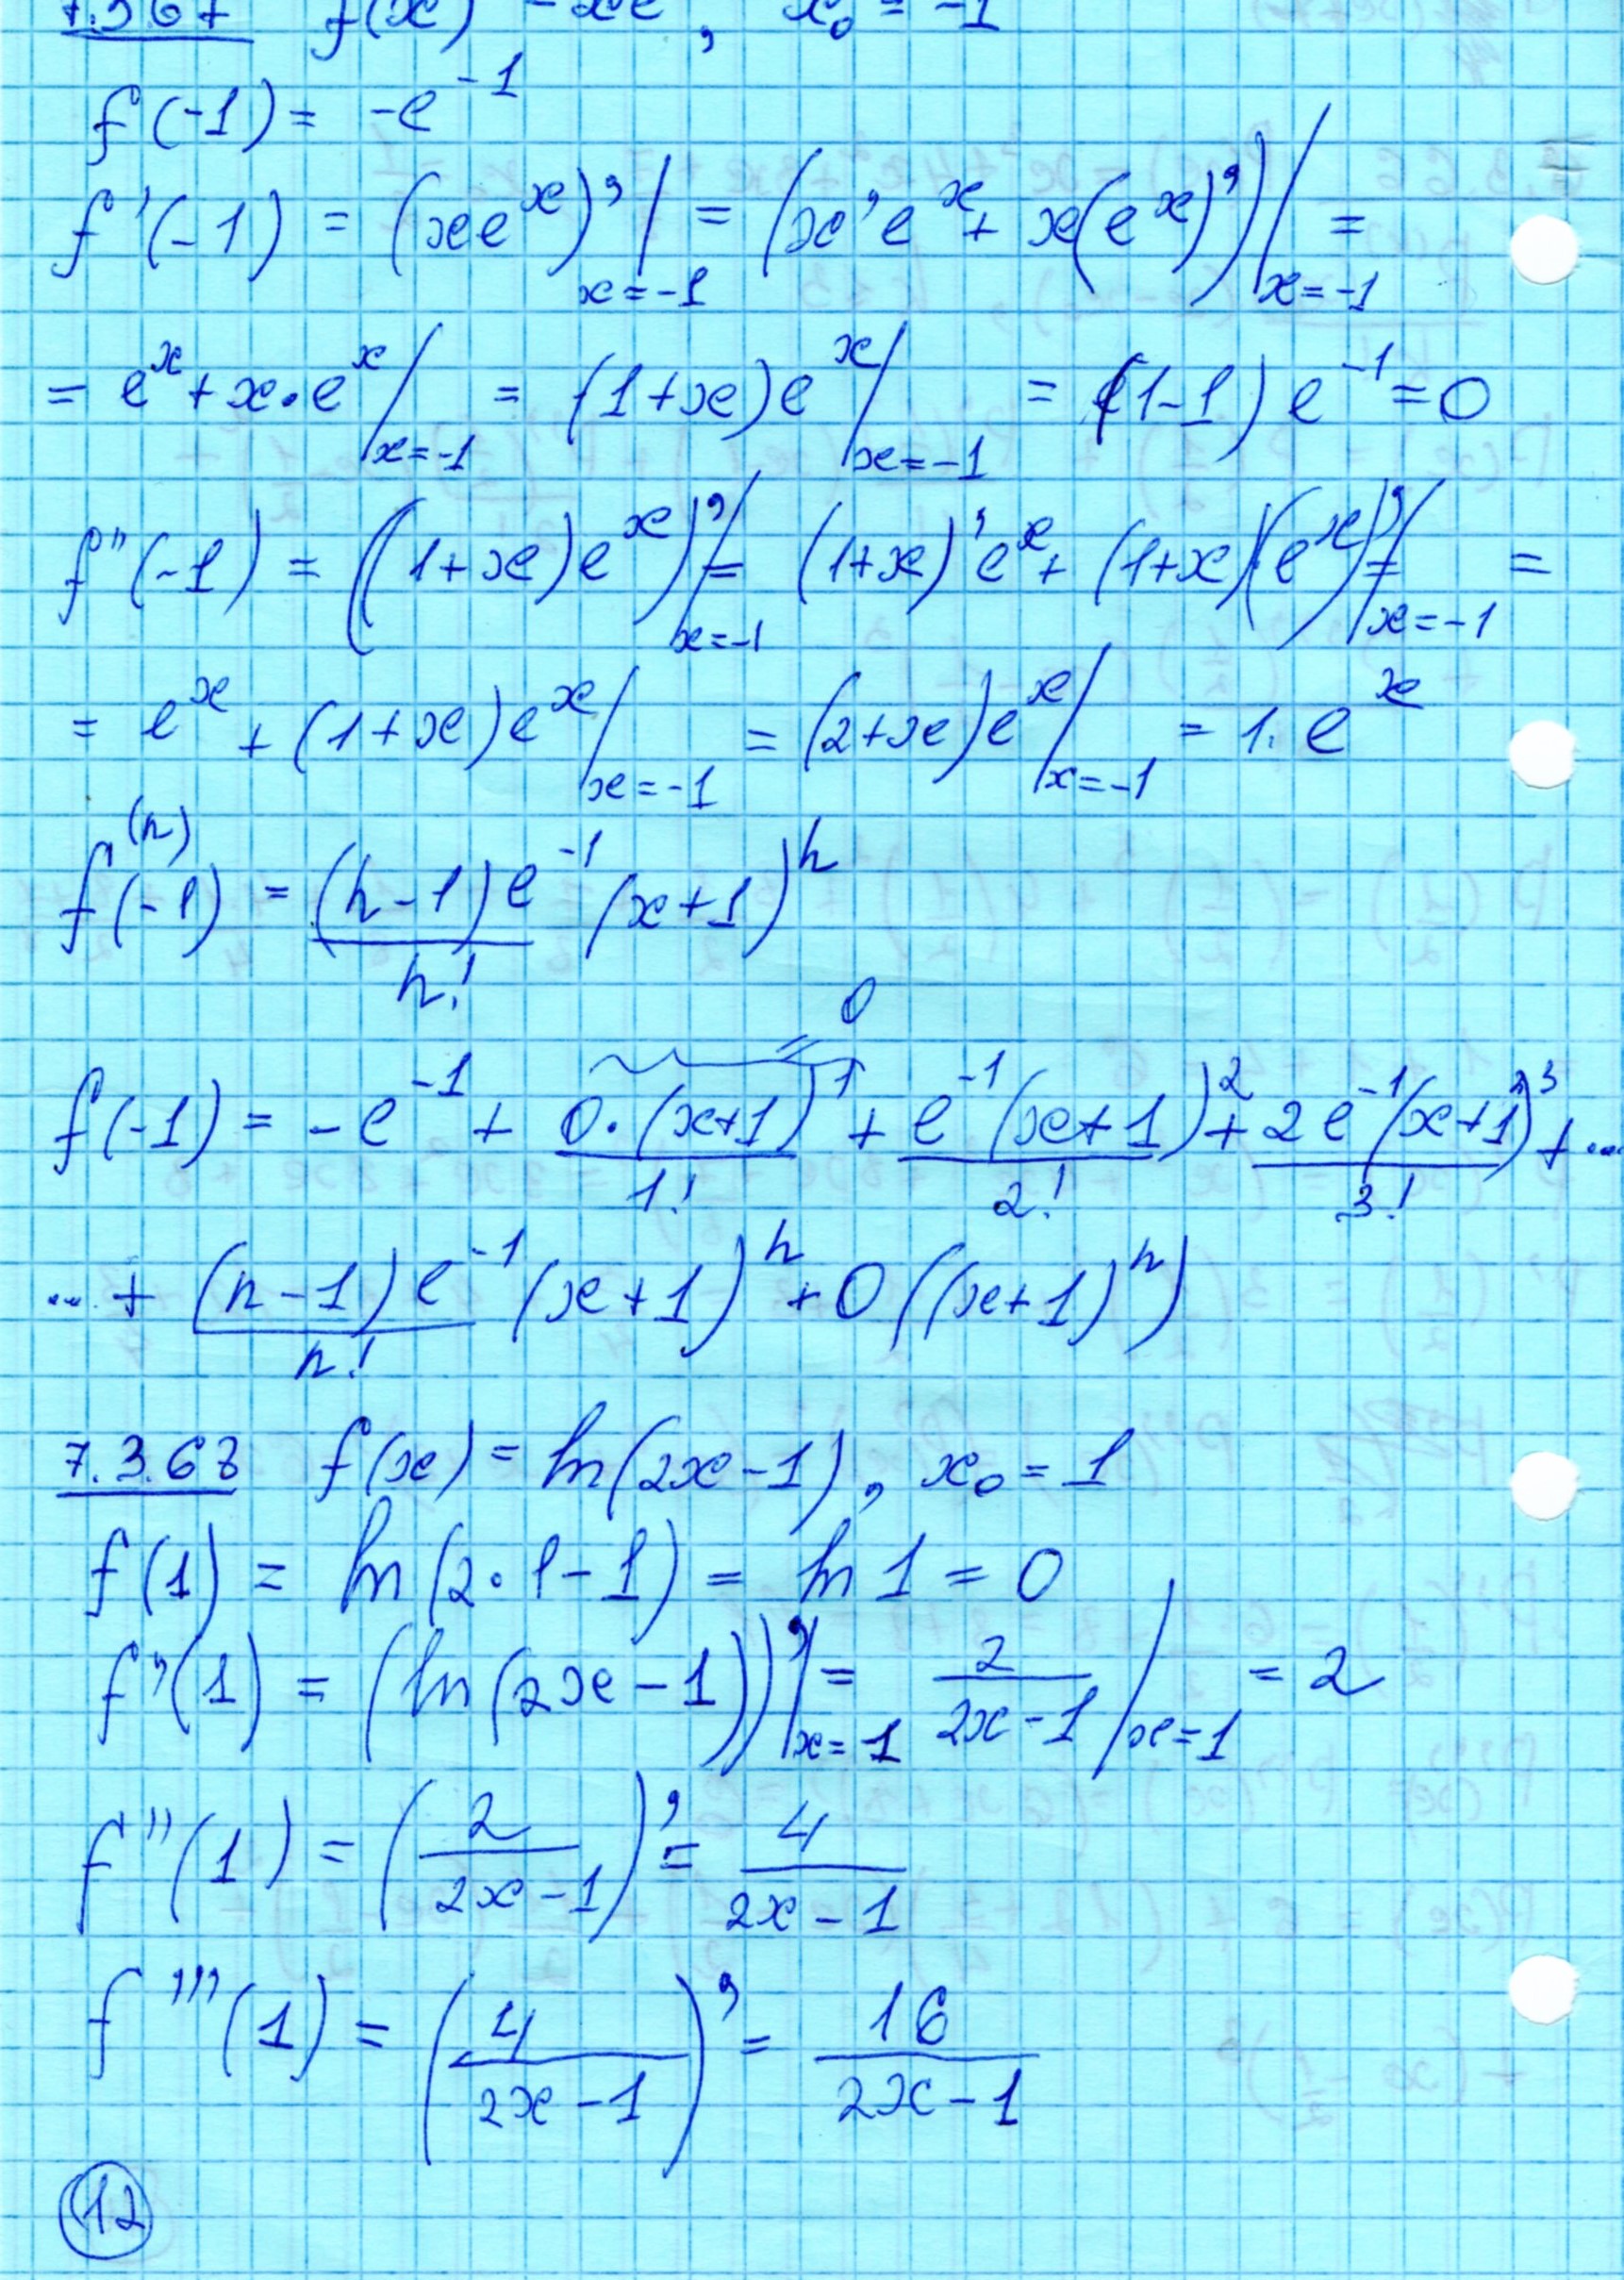 7.367 f(x) = xe , x₀ = -1
f(-1) = -e⁻¹
f'(-1) = (xeˣ)' |ₓ₌₋₁ = (x'eˣ + x(eˣ)') |ₓ₌₋₁ =
= eˣ + x·eˣ |ₓ₌₋₁ = (1+x)eˣ |ₓ₌₋₁ = (1-1)e⁻¹ = 0
f''(-1) = ((1+x)eˣ)' |ₓ₌₋₁ = (1+x)'eˣ + (1+x)(eˣ)' |ₓ₌₋₁ =
= eˣ + (1+x)eˣ |ₓ₌₋₁ = (2+x)eˣ |ₓ₌₋₁ = 1·eˣ
f⁽ⁿ⁾(-1) = (n-1)e⁻¹/n! (x+1)ⁿ
0
f(-1) = -e⁻¹ + 0·(x+1)¹/1! + e⁻¹(x+1)²/2! + 2e⁻¹(x+1)³/3! + ...
... + (n-1)e⁻¹/n! (x+1)ⁿ + O((x+1)ⁿ)
7.3.68 f(x) = ln(2x-1), x₀ = 1
f(1) = ln(2·1-1) = ln 1 = 0
f'(1) = (ln(2x-1))' |ₓ₌₁ = 2/(2x-1) |ₓ₌₁ = 2
f''(1) = (2/(2x-1))' = 4/(2x-1)
f'''(1) = (4/(2x-1))' = 16/(2x-1)
12